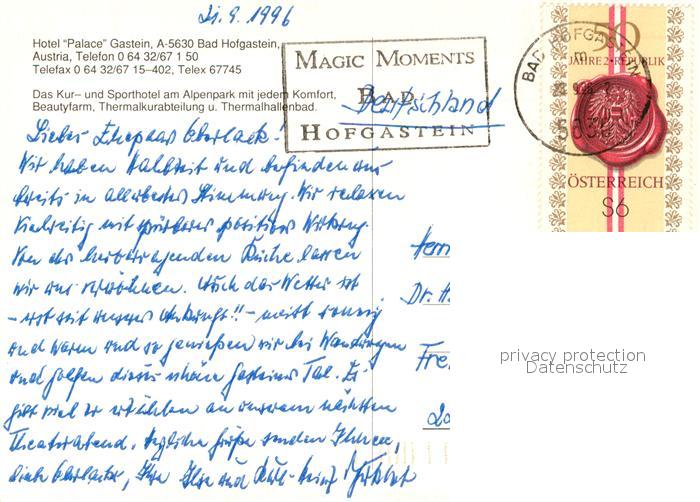 21.9.1996
Hotel "Palace" Gastein, A-5630 Bad Hofgastein,
Austria, Telefon 0 64 32/67 1 50
Telefax 0 64 32/67 15-402, Telex 67745
Das Kur- und Sporthotel am Alpenpark mit jedem Komfort,
Beautyfarm, Thermalkurabteilung u. Thermalhallenbad.
MAGIC MOMENTS
BAD
HOFGASTEIN
Deutschland
BAD HOFGASTEIN
5630
50
JAHRE 2. REPUBLIK
ÖSTERREICH
S6
Liebes Ehepaar
Wir haben Halbzeit und befinden uns
bereits in allerbester Stimmung. Wir relaxen
vielseitig mit spürbarer positiver Wirkung.
Von der hervorragenden Küche lassen
wir uns verwöhnen. Auch das Wetter ist
- erst seit unserer Ankunft!! - meist sonnig
und warm und so genießen wir bei Wanderungen
und golfen dieses schöne Gasteiner Tal. Es
gibt viel zu erzählen an unserem nächsten
Theaterabend. Herzliche Grüße senden Ihnen,
Ihre Ilse und
Herrn
Dr. H.
Fre
privacy protection
Datenschutz